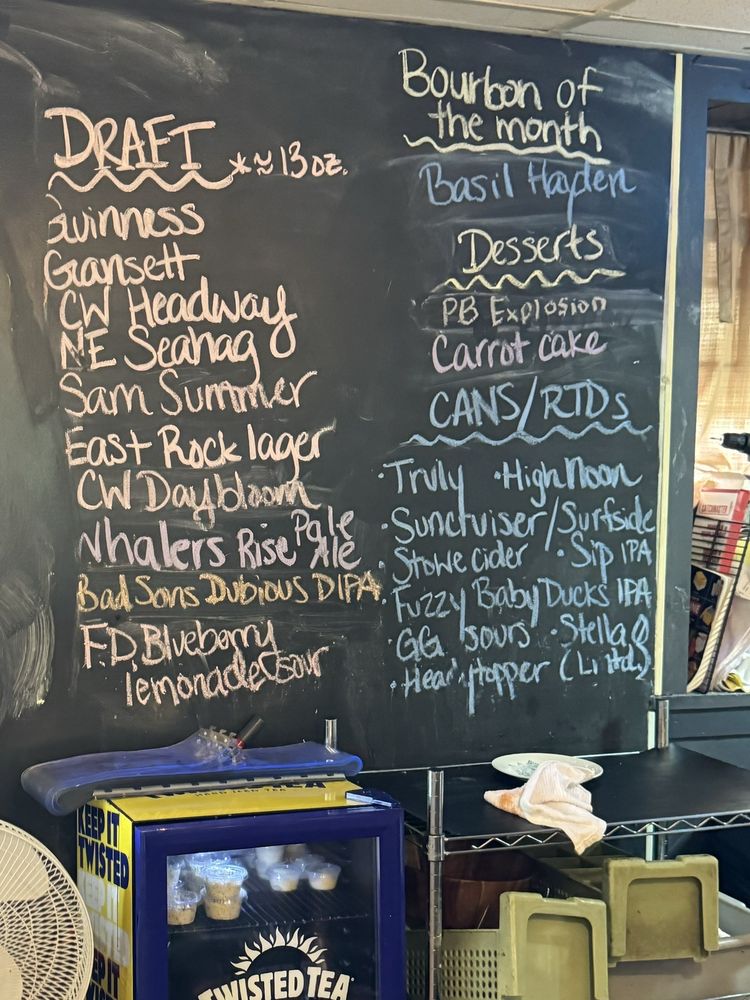 DRAFT *≈ 13 oz.
Guinness
Gansett
CW Headway
NE Seahag
Sam Summer
East Rock lager
CW Daybloom
Whalers Rise Pale Ale
Bad Sons Dubious DIPA
F.D. Blueberry
lemonade sour
Bourbon of
the month
Basil Hayden
Desserts
PB Explosion
Carrot cake
CANS/RTDs
· Truly · High Noon
· Suncruiser/Surfside
· Stowe cider · Sip IPA
· Fuzzy Baby Ducks IPA
· GG sours · Stella
· Heady Topper (Ltd.)
KEEP IT
TWISTED
KEEP IT
TWISTED
KEEP IT
TWISTED TEA